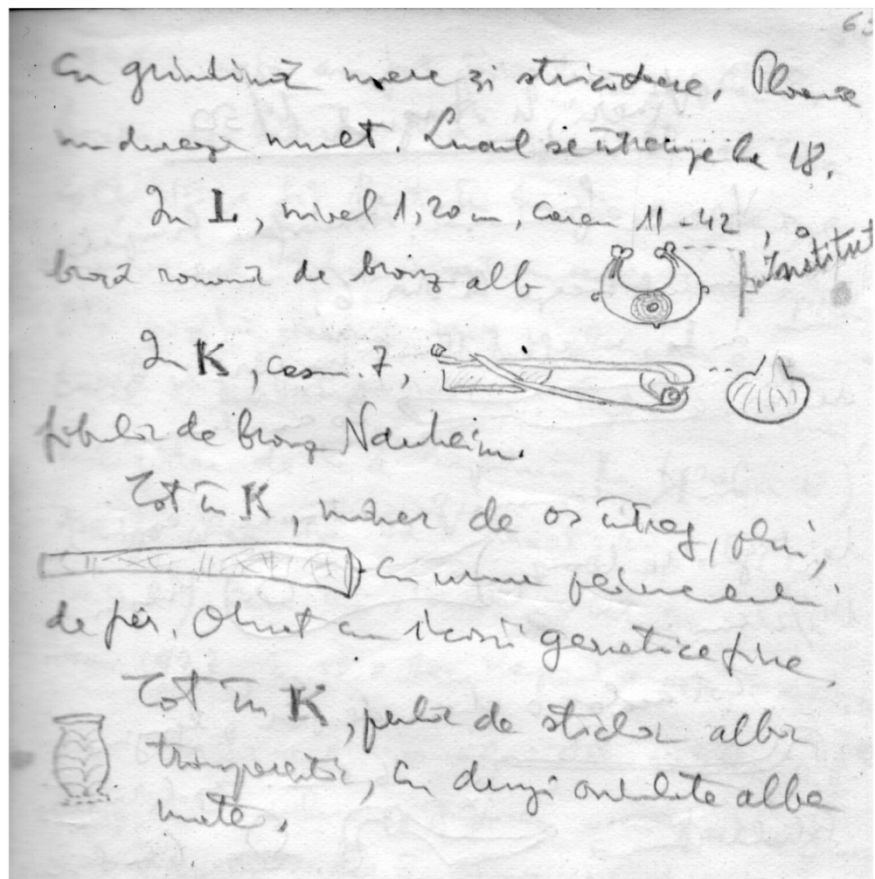 63
Cu grindină mare și stricătoare. Ploaia
nu durează mult. Lucrul se întrerupe la 18.
În L, nivel 1,20 m, casa 11-42, o
broșă romană de bronz alb
Institut
În K, cas. 7,
fibulă de bronz Nauheim.
Tot în K, mâner de os întreg, plin,
cu urme
de fier. Ornat cu incizii geometrice fine
Tot în K, perlă de sticlă albă
transparentă, cu dungi ondulate albe
mate.